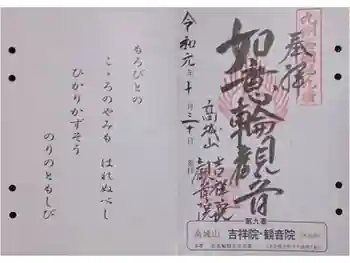 奉拝
如意輪観音
令和元年十月二十日
高城山
吉祥院
観音院
第九番
高城山 吉祥院・観音院
もろびとの
こゝろのやみも はれぬべし
ひかりかずそう
のりのともしび